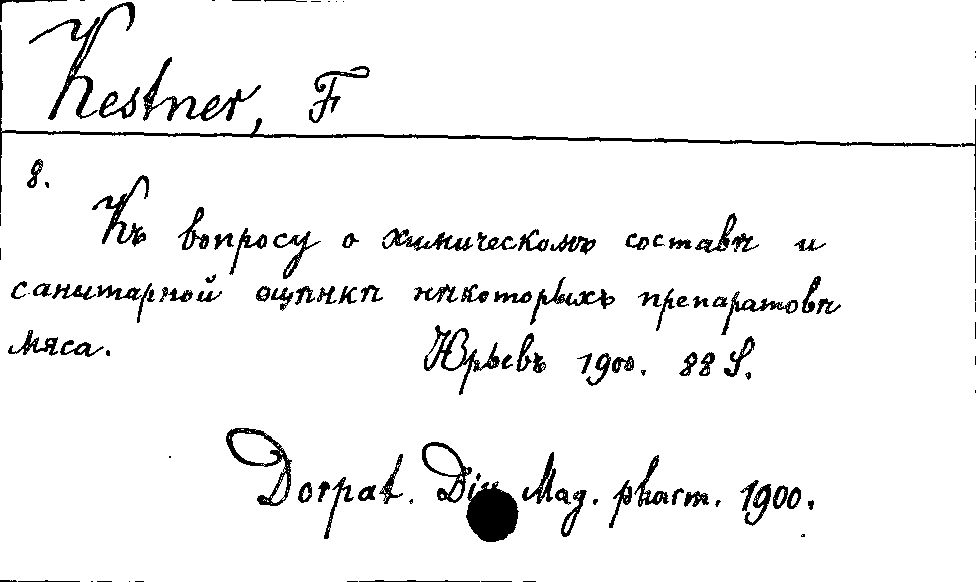 Kestner, F
8.
Къ вопросу о химическомъ составѣ и
санитарной оцѣнкѣ нѣкоторыхъ препаратовъ
мяса.
Юрьевъ 1900. 88 S.
Dorpat. Mag. pharm. 1900.